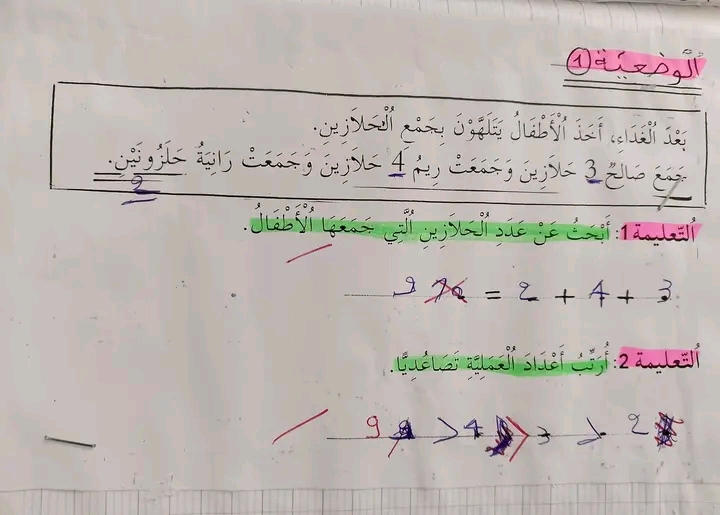 الْوَضْعِيَّة 1
بَعْدَ الْغَدَاءِ، أَخَذَ الْأَطْفَالُ يَتَلَهَّوْنَ بِجَمْعِ الْحَلَازِينِ.
جَمَعَ صَالِحٌ 3 حَلَازِينَ وَجَمَعَتْ رِيمُ 4 حَلَازِينَ وَجَمَعَتْ رَانِيَةُ حَلَزُونَيْنِ.
2
التَّعْلِيمة 1: أَبْحَثُ عَنْ عَدَدِ الْحَلَازِينِ الَّتِي جَمَعَهَا الْأَطْفَالُ.
3 + 4 + 2 = 9
التَّعْلِيمة 2: أُرَتِّبُ أَعْدَادَ الْعَمَلِيَّةِ تَصَاعُدِيًّا.
2 > 3 > 4 > 9